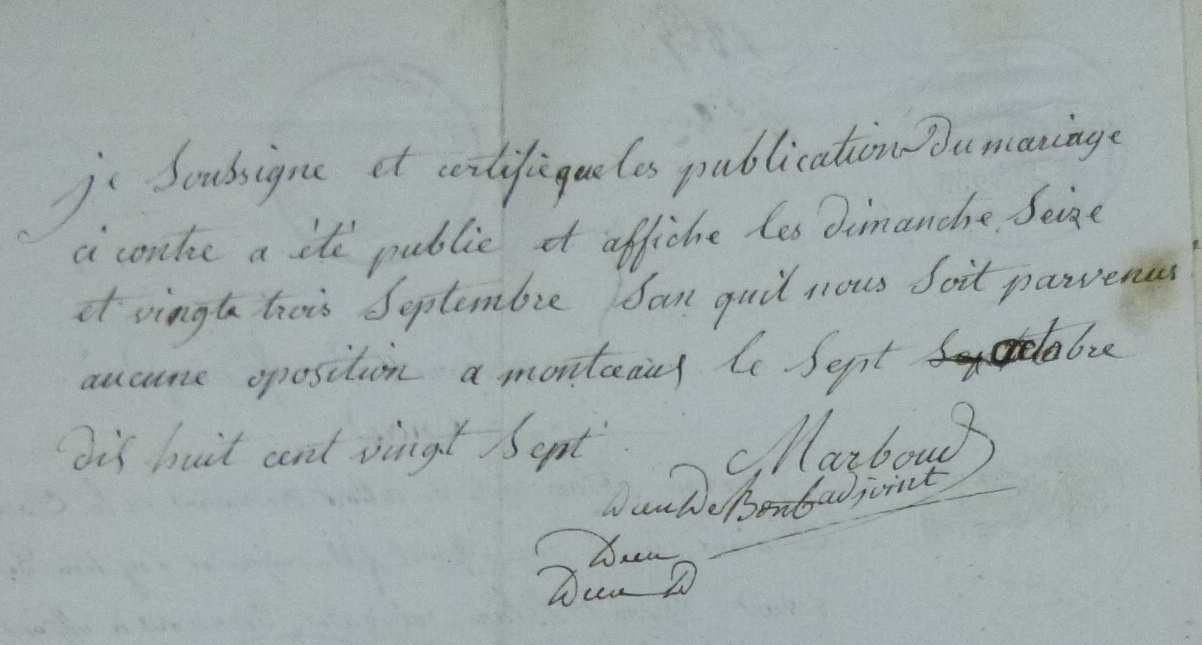 je Soussigne et certifie que les publication Du mariage
ci contre a été publie et affiche les dimanche Seize
et vingt trois Septembre San quil nous Soit parvenus
aucune oposition a montceaux le Sept octobre
dis huit cent vingt Sept
Marboud
Dieu De Bont adjoint
Dieu
Dieu D